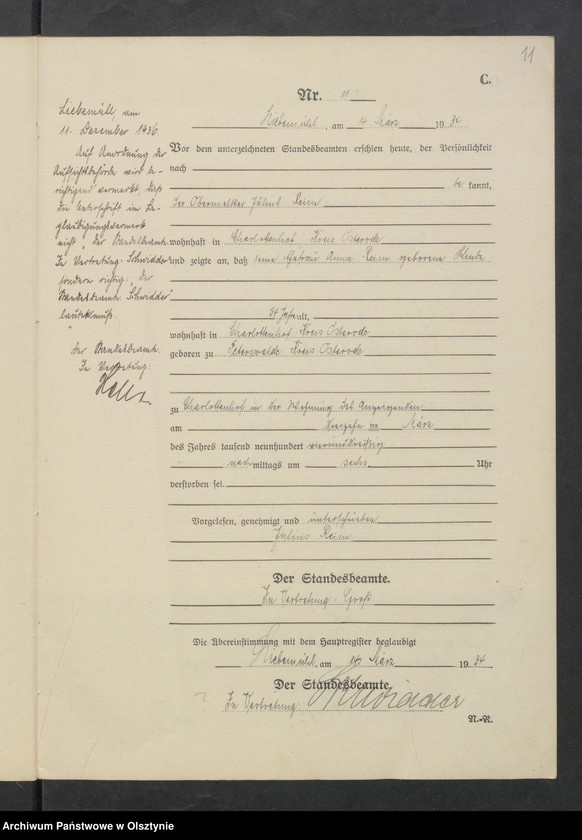 11
C.
Nr. 11
Liebemühl, am 4. März 1934
Vor dem unterzeichneten Standesbeamten erschien heute, der Persönlichkeit
nach
be kannt,
der Obermelker Julius Reim
wohnhaft in Charlottenhof, Kreis Osterode
und zeigte an, daß seine Ehefrau Anna Reim geborene
alt,
wohnhaft in Charlottenhof Kreis Osterode
geboren zu Peterswalde Kreis Osterode
zu Charlottenhof in der Wohnung des Anzeigenden
am März
des Jahres tausend neunhundert vierunddreißig
nach mittags um sechs Uhr
verstorben sei.
Vorgelesen, genehmigt und unterschrieben
Julius Reim
Der Standesbeamte.
In Vertretung: Groß
Die Übereinstimmung mit dem Hauptregister beglaubigt
Liebemühl, am März 1934
Der Standesbeamte.
In Vertretung:
N.-R.
Liebemühl, am
11. Dezember 1936.
Auf Anordnung der
Aufsichtsbehörde wird be-
richtigend vermerkt, daß
die Unterschrift im Be-
glaubigungsvermerk
nicht "der Standesbeamte.
In Vertretung: Schwidder"
sondern richtig: "der
Standesbeamte. Schwidder"
lauten muß.
Der Standesbeamte.
In Vertretung:
Archiwum Państwowe w Olsztynie